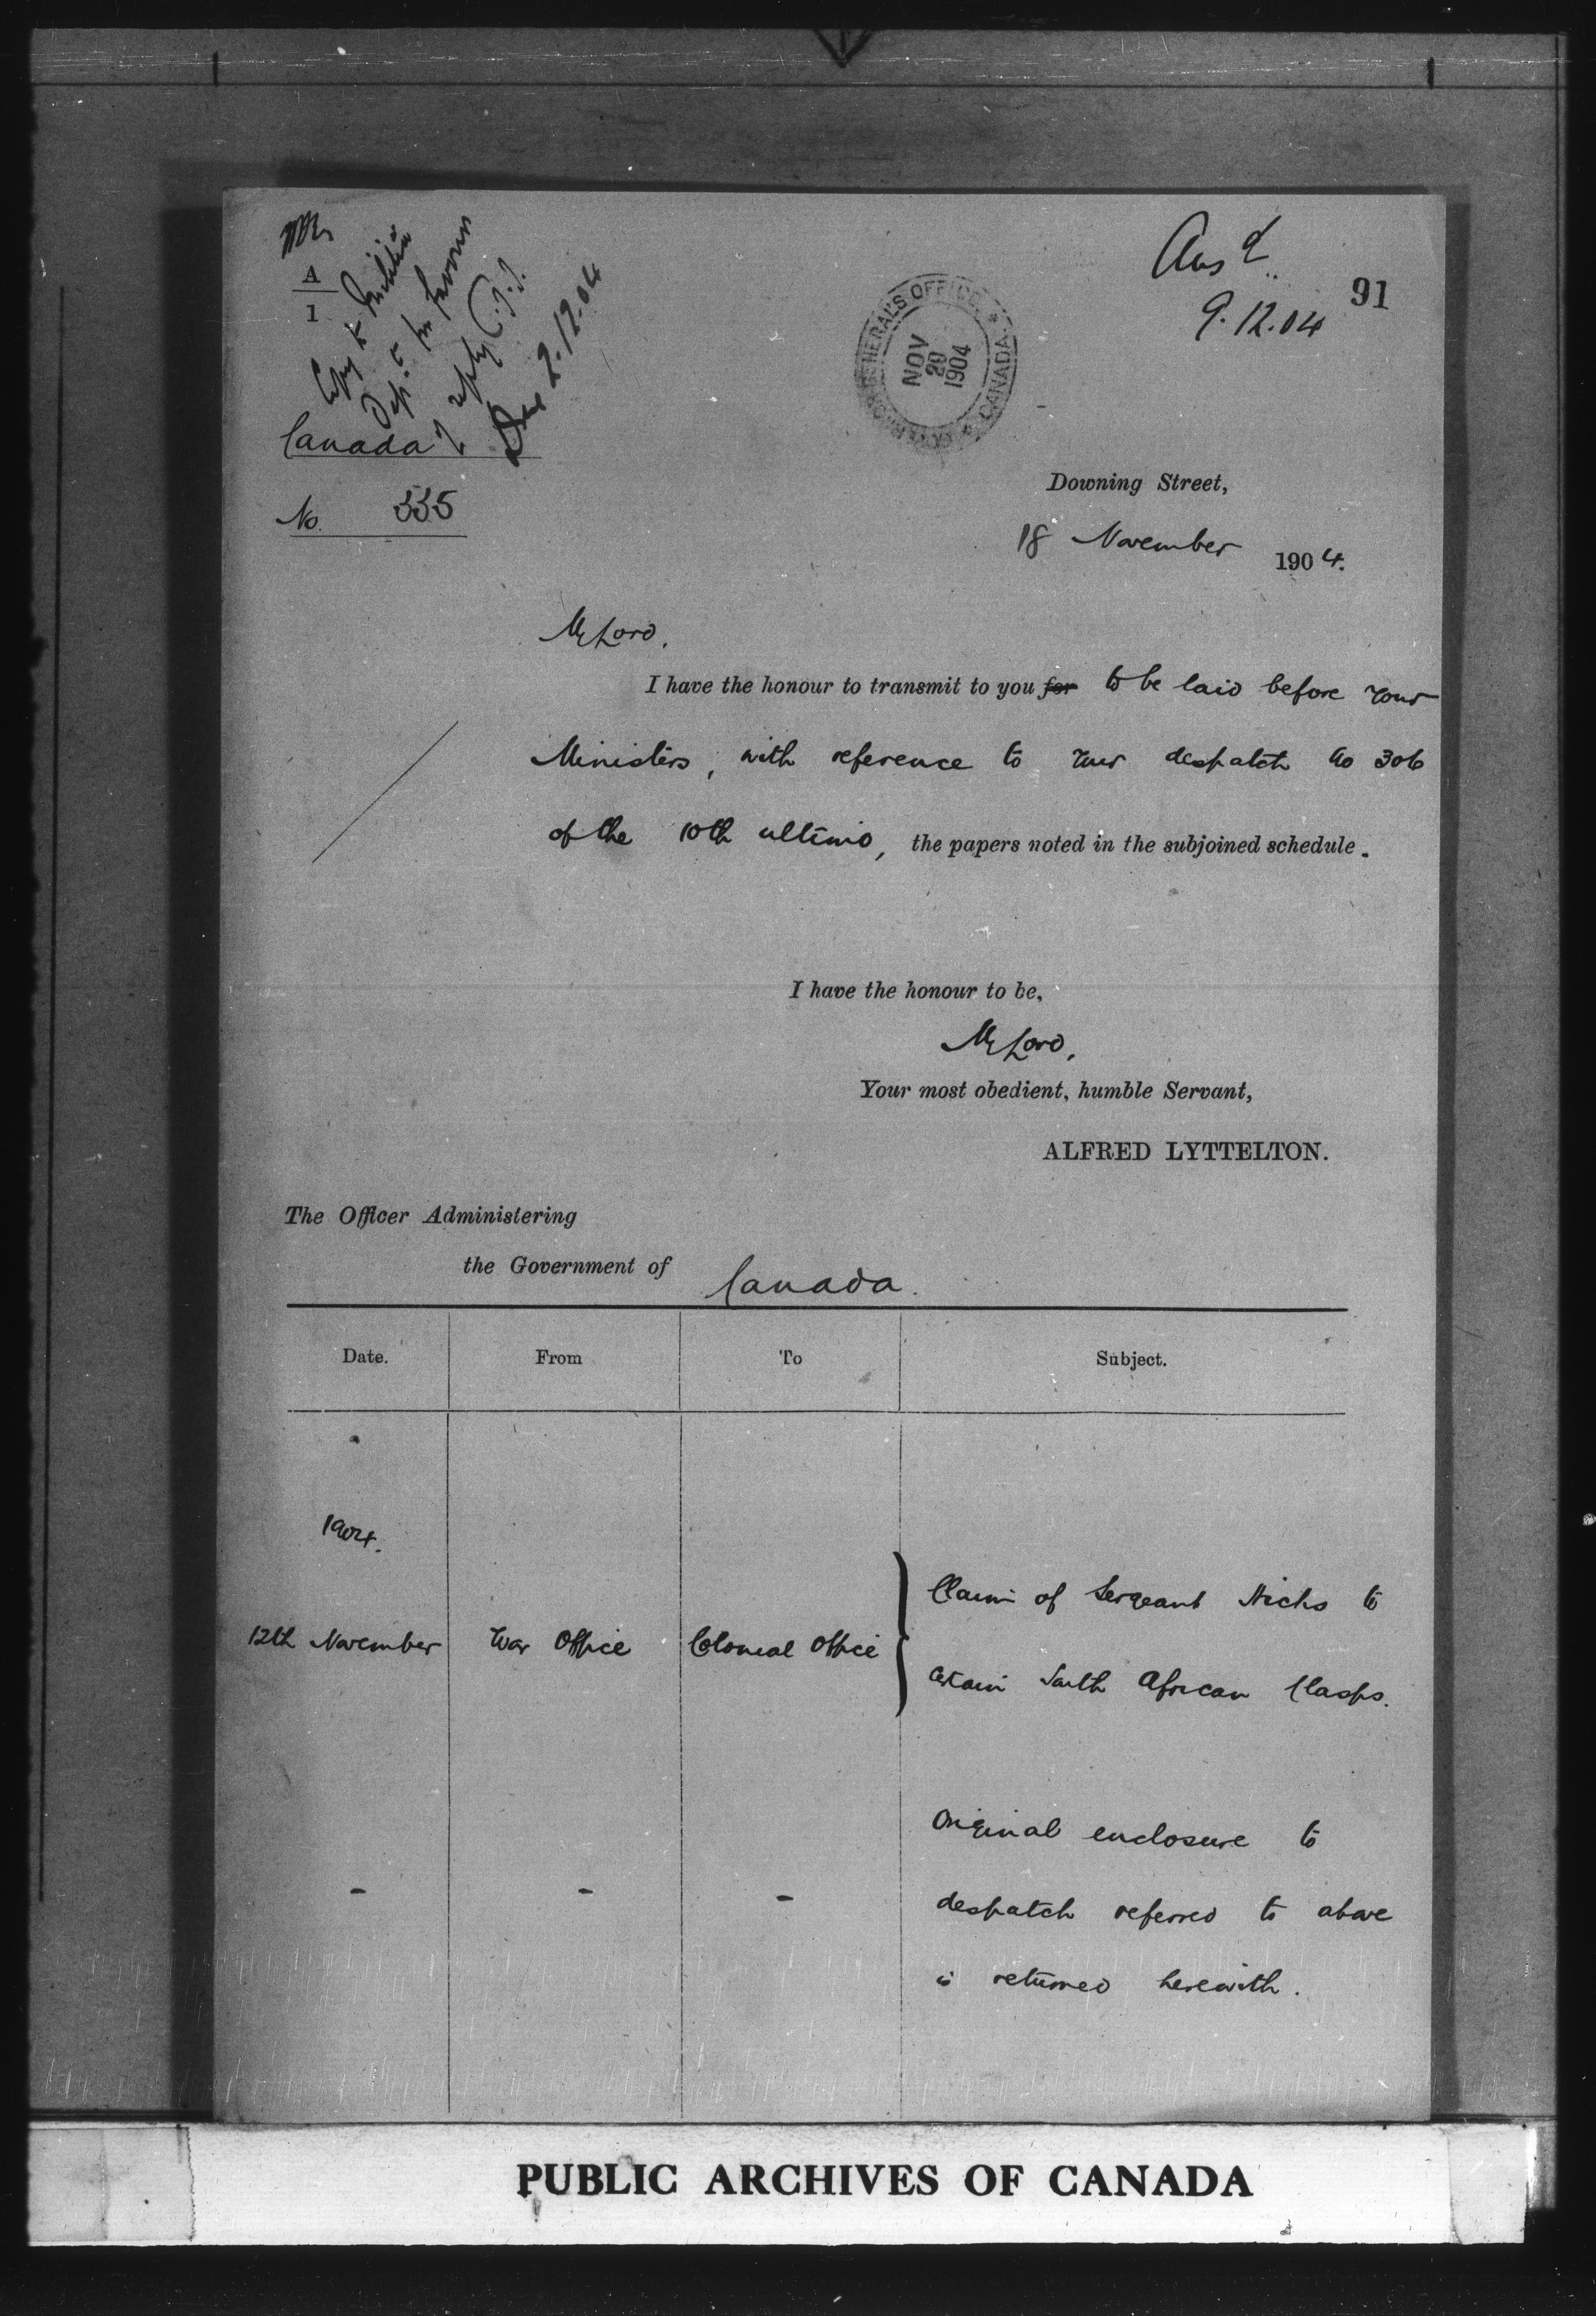 A
1
Copy to Militia
Dep.t for favour
of reply
2.12.04
Ans d
9.12.04
91
GOVERNOR GENERAL'S OFFICE * CANADA *
NOV
29
1904
Canada
No. 335
Downing Street,
18 November 1904.
My Lord,
I have the honour to transmit to you for to be laid before your
Ministers, with reference to your despatch No 306
of the 10th ultimo, the papers noted in the subjoined schedule.
I have the honour to be,
My Lord,
Your most obedient, humble Servant,
ALFRED LYTTELTON.
The Officer Administering
the Government of Canada.
Date. From To Subject.
1904.
Claim of Sergeant Hicks to
12th November War Office Colonial Office
certain South African Clasps.
Original enclosure to
- - - despatch referred to above
is returned herewith.
PUBLIC ARCHIVES OF CANADA